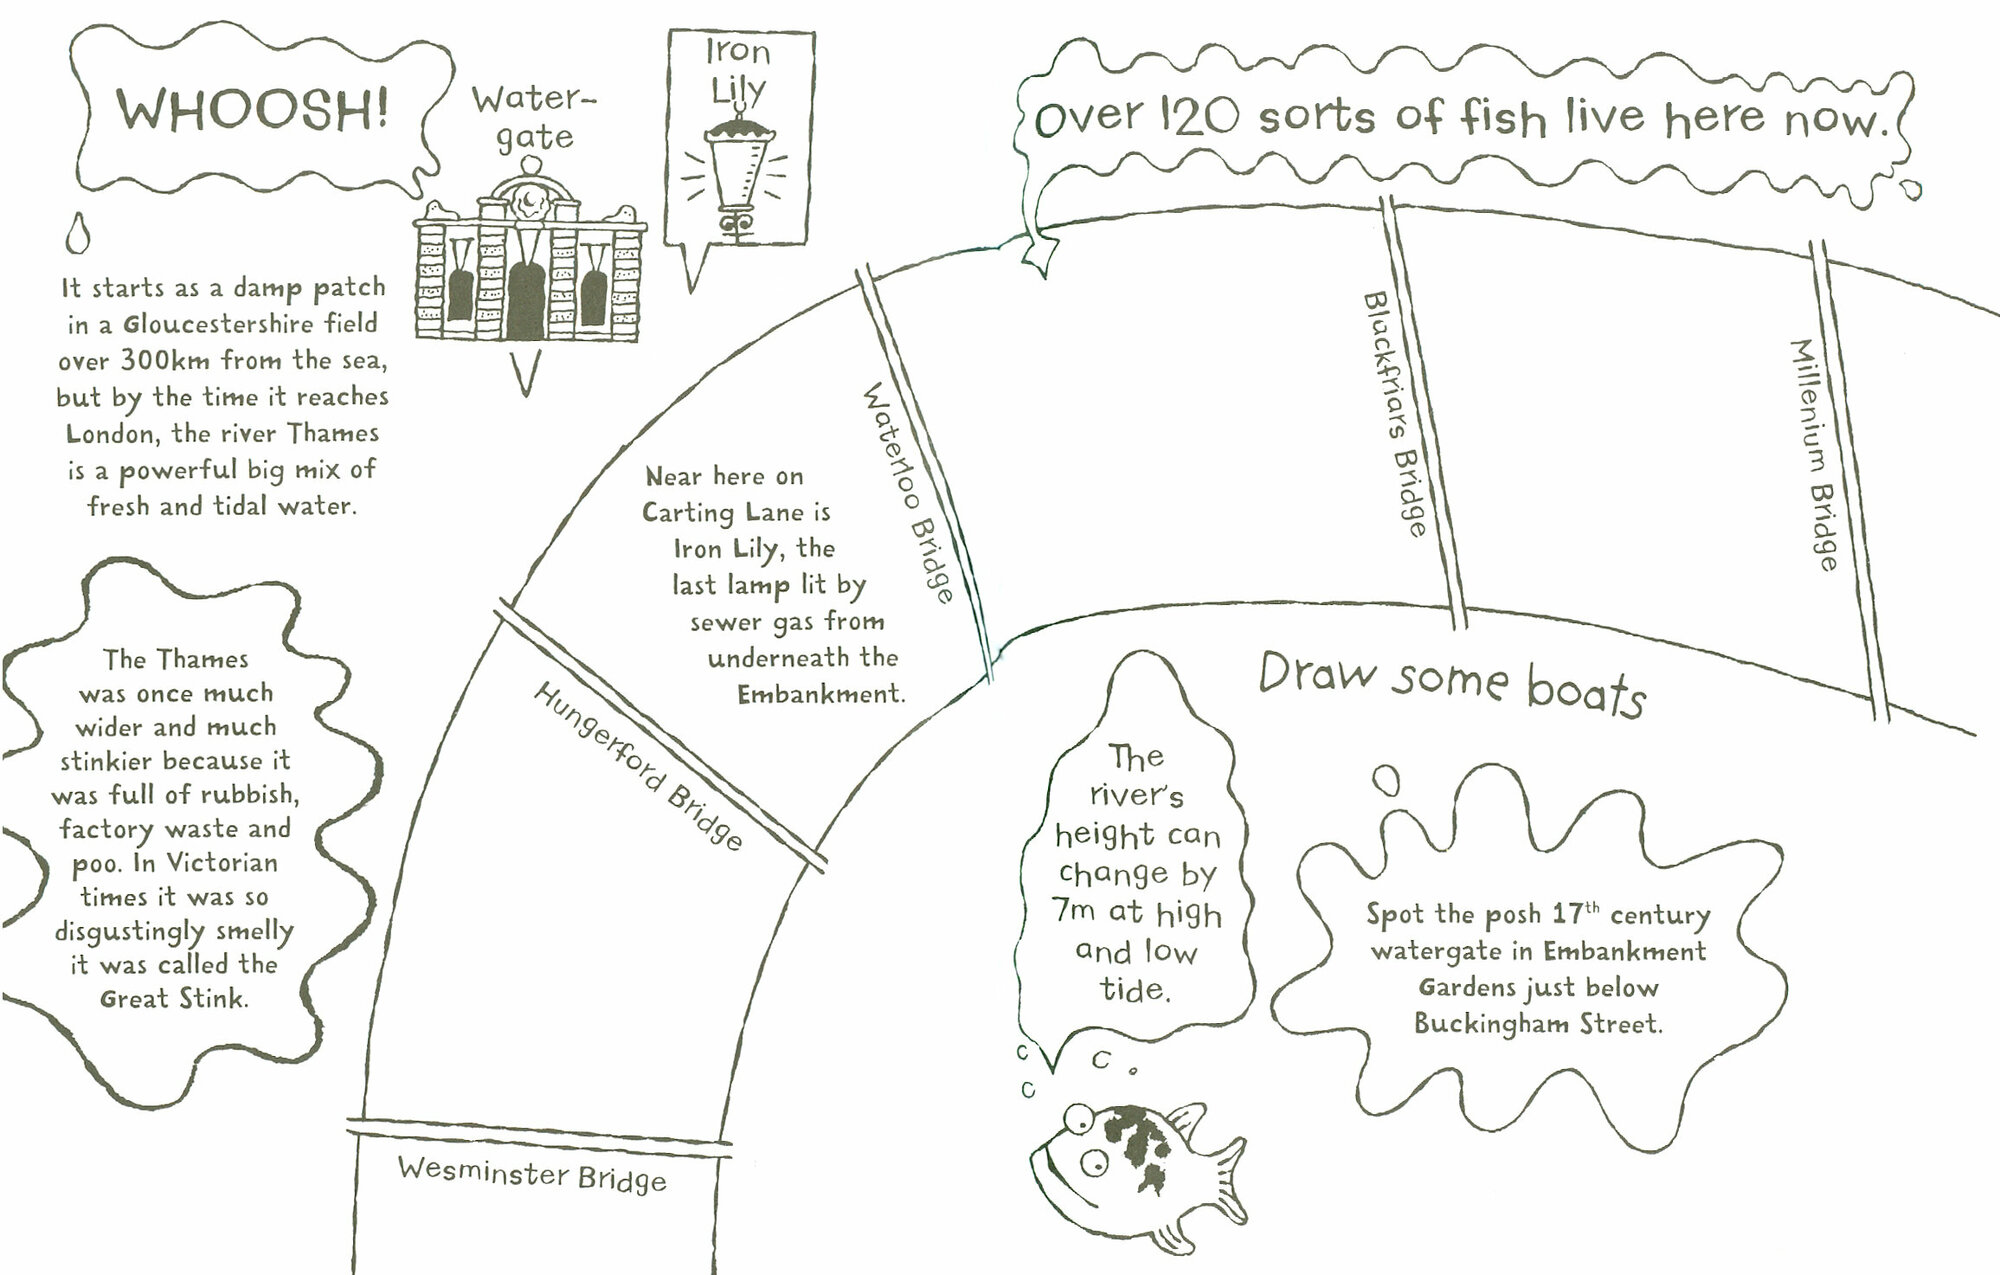 WHOOSH!
Water-
gate
Iron
Lily
Over 120 sorts of fish live here now.
It starts as a damp patch
in a Gloucestershire field
over 300km from the sea,
but by the time it reaches
London, the river Thames
is a powerful big mix of
fresh and tidal water.
Near here on
Carting Lane is
Iron Lily, the
last lamp lit by
sewer gas from
underneath the
Embankment.
Waterloo Bridge
Blackfriars Bridge
Millenium Bridge
The Thames
was once much
wider and much
stinkier because it
was full of rubbish,
factory waste and
poo. In Victorian
times it was so
disgustingly smelly
it was called the
Great Stink.
Hungerford Bridge
Draw some boats
The
river's
height can
change by
7m at high
and low
tide.
Spot the posh 17th century
watergate in Embankment
Gardens just below
Buckingham Street.
Wesminster Bridge